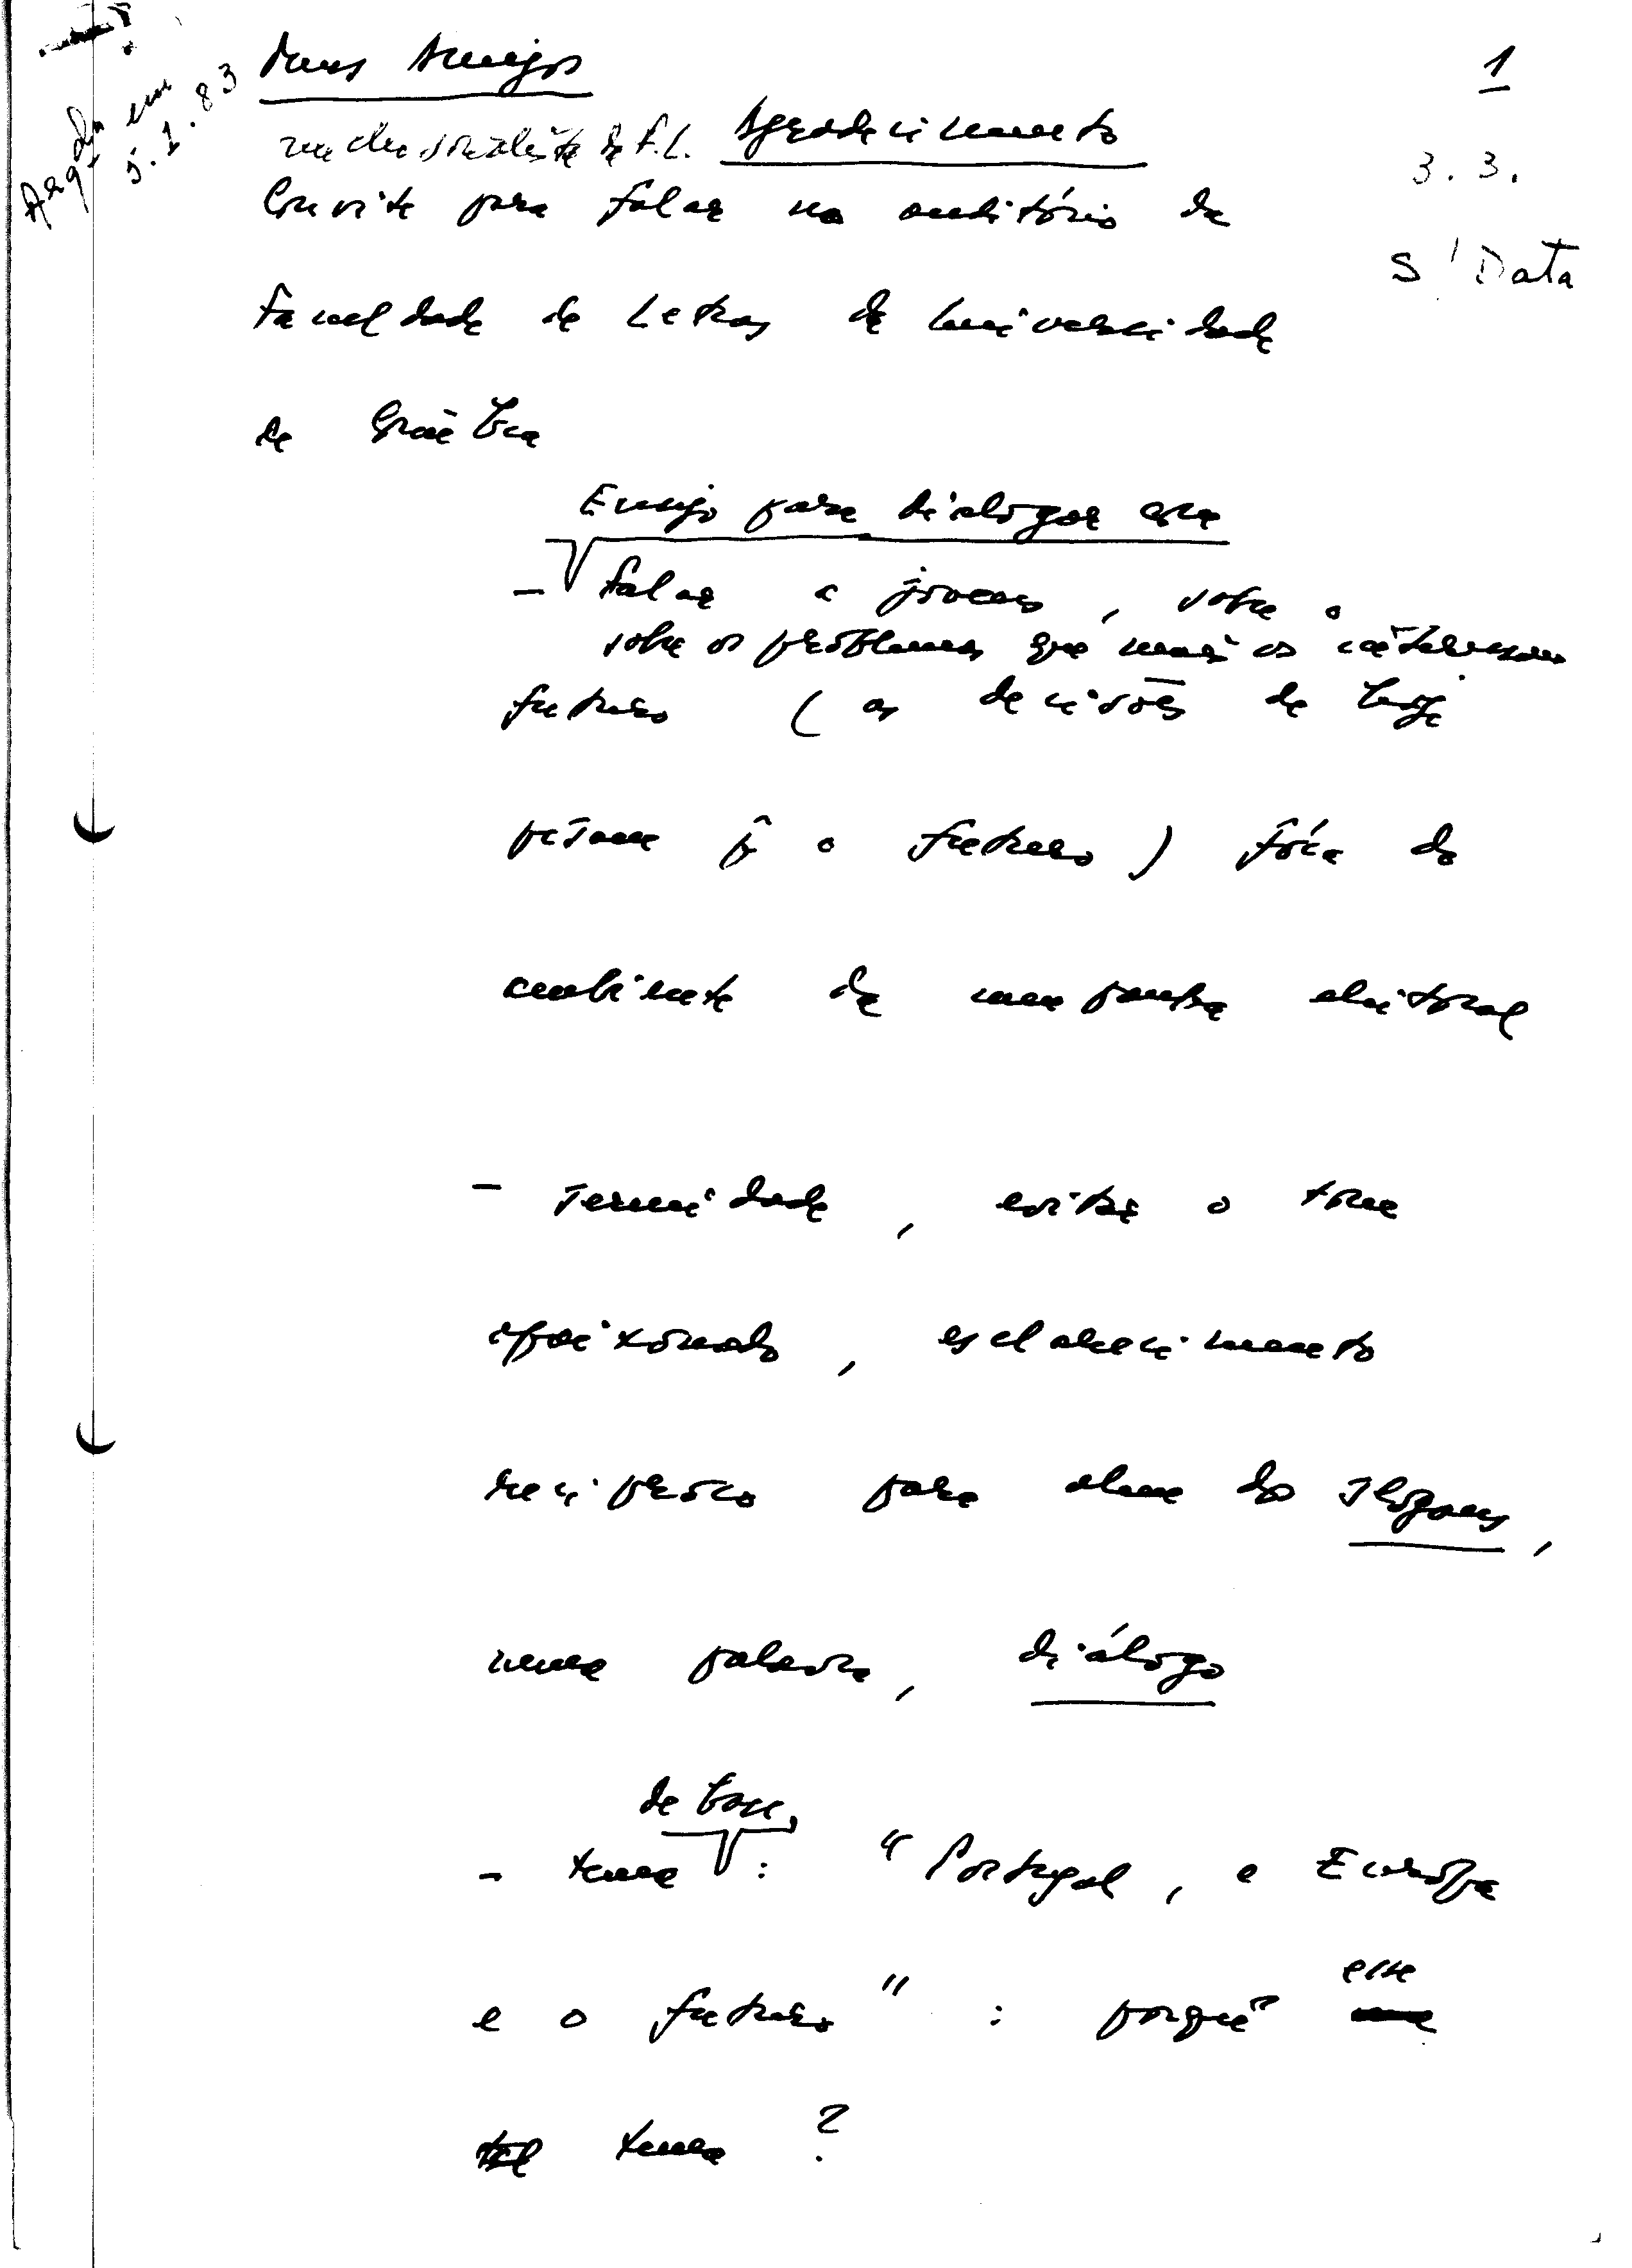 Meus Amigos
1
Arq.do em
5.1.83
núcleo socialista da F.L. Agradecimento
3.3.
S/Data
Convite para falar no auditório da
Faculdade de Letras da Universidade
de Coimbra
Ensejo para dialogar
- Falar a jovens, sobre o
sobre os problemas que mais os interessam
futuro (as decisões de hoje
p^ o futuro) fóra do
ambiente da campanha eleitoral
- Serenidade, evitar o tom
apaixonado, esclarecimento
recíproco para além do slogans,
numa palavra, diálogo
de base,
- tema : "Portugal, a Europa
e o futuro" : porquê esse
tal tema ?